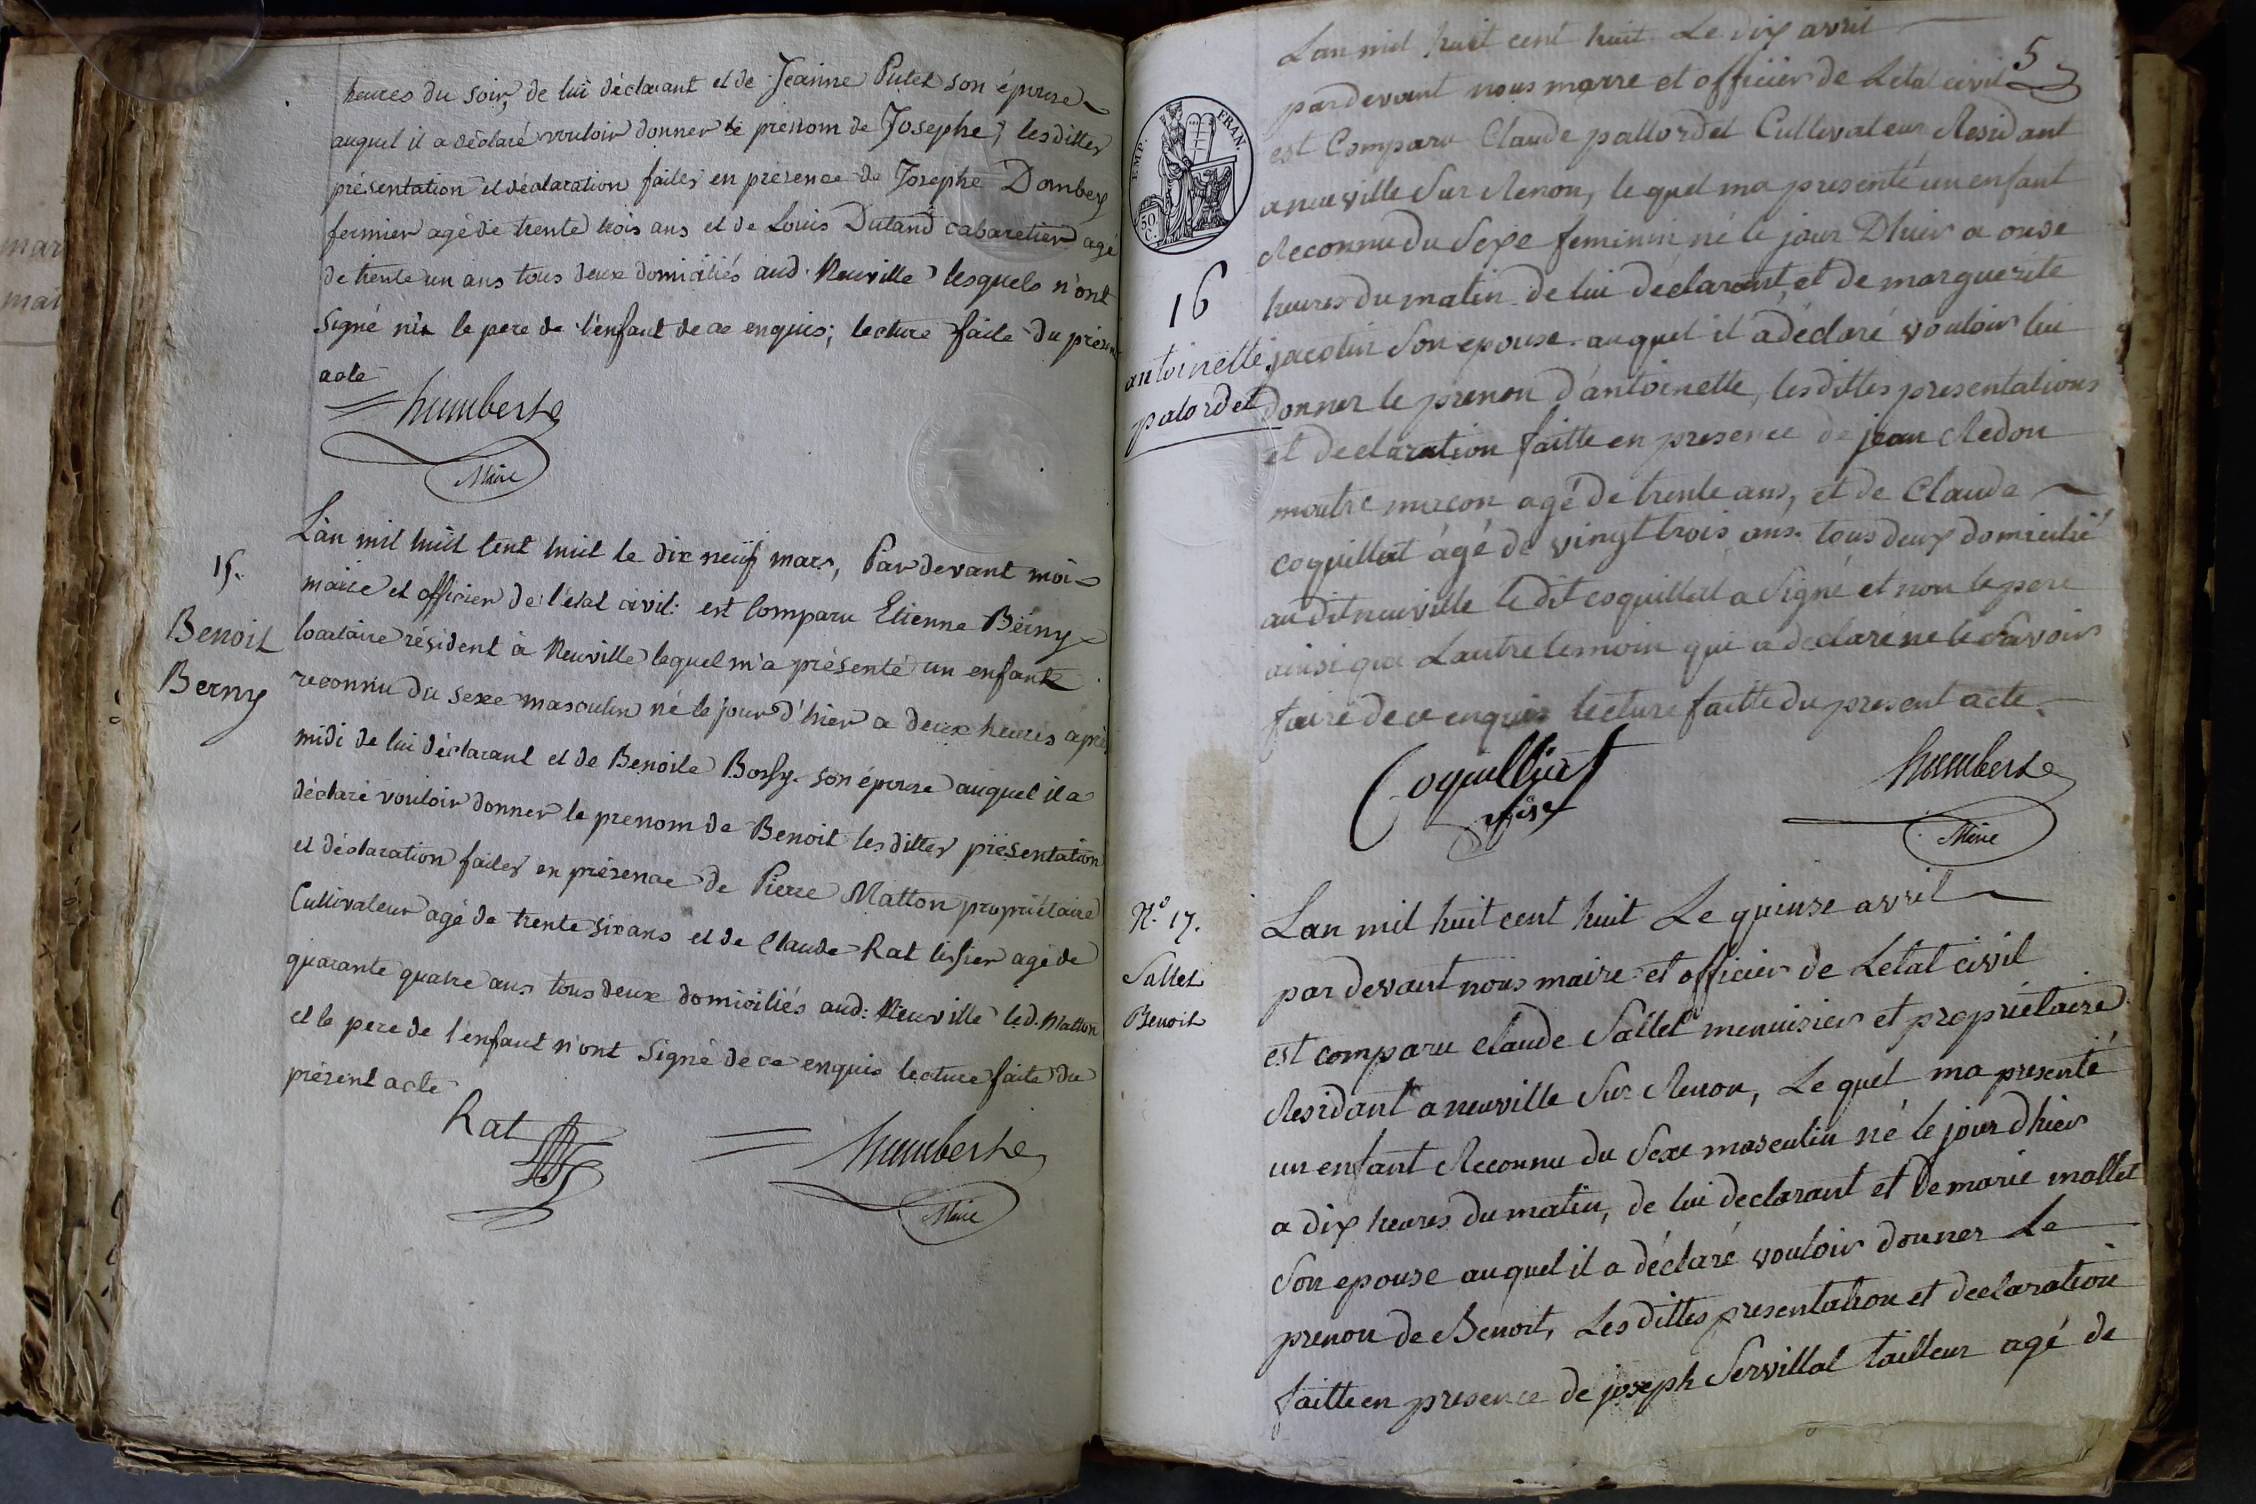 heures du soir, de lui déclarant et de Jeanne Putet son épouse
auquel il a déclaré vouloir donner le prénom de Josephe, les dittes
présentation et déclaration faites en présence de Josephe Dombey
fermier agé de trente trois ans et de Louis Dutand cabaretier agé
de trente un ans tous deux domiciliés aud. Neuville lesquels n'ont
signé ni le pere de l'enfant de ce enquis; lecture faite du présent
acte
humbert
Maire
15.
Benoit
Berny
L'an mil huit cent huit le dix neuf mars, Par devant moi
maire et officier de l'état civil est comparu Etienne Berny
locataire résident à Neuville lequel m'a présenté un enfant
reconnu du sexe masculin né le jour d'hier a deux heures après
midi de lui déclarant et de Benoite Bossy son épouse auquel il a
déclaré vouloir donner le prenom de Benoit les dittes présentation
et déclaration faites en présence de Pierre Matton propriétaire
Cultivateur agé de trente six ans et de Claude Rat tissier agé de
quarante quatre ans tous deux domiciliés aud: Neuville led. Matton
et le pere de l'enfant n'ont signé de ce enquis lecture faite du
présent acte
Rat
humbert
Maire
5
EMP. FRAN.
50 C.
16
antoinette
palordet
Lan mil huit cent huit Le dix avril
pardevant nous marre et officier de Letat civil
est Comparu Claude pallordet Cultivateur Residant
a neuville Sur Renon, le quel ma presenté un enfant
Reconnu du Sexe feminin né le jour Dhier a onse
heures du matin de lui déclarant, et de marguerite
jacotin Son epouse auquel il a déclaré vouloir lui
donner le prenon d'antoinette, les dittes presentations
et declaration faitte en presence de jean Redon
maitre macon agé de trente ans, et de Claude
coquillat âgé de vingt trois ans tous deux domicilié
au dit neuville ledit coquillat a Signé et non le pere
ainsi que Lautre temoin qui a declaré ne le Savoir
faire de ce enquis lecture faitte du present acte
Coquilliat
humbert
Maire
N.° 17.
Sallet
Benoit
Lan mil huit cent huit Le quinse avril
par devant nous maire et officier de Letat civil
est comparu claude Sallet menuisier et propriétaire
Residant a neuville Sur Renon, Le quel ma presenté
un enfant Reconnu du Sexe masculin né le jour dhier
a dix heures du matin, de lui declarant et De marie mallet
Son epouse auquel il a déclaré vouloir donner Le
prenon de Benoit, Les dittes presentation et declaration
faitte en presence de joseph Servillat tailleur agé de